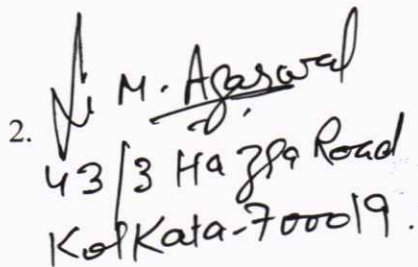 2. M. Agarwal
43/3 Hazra Road
Kolkata-700019.